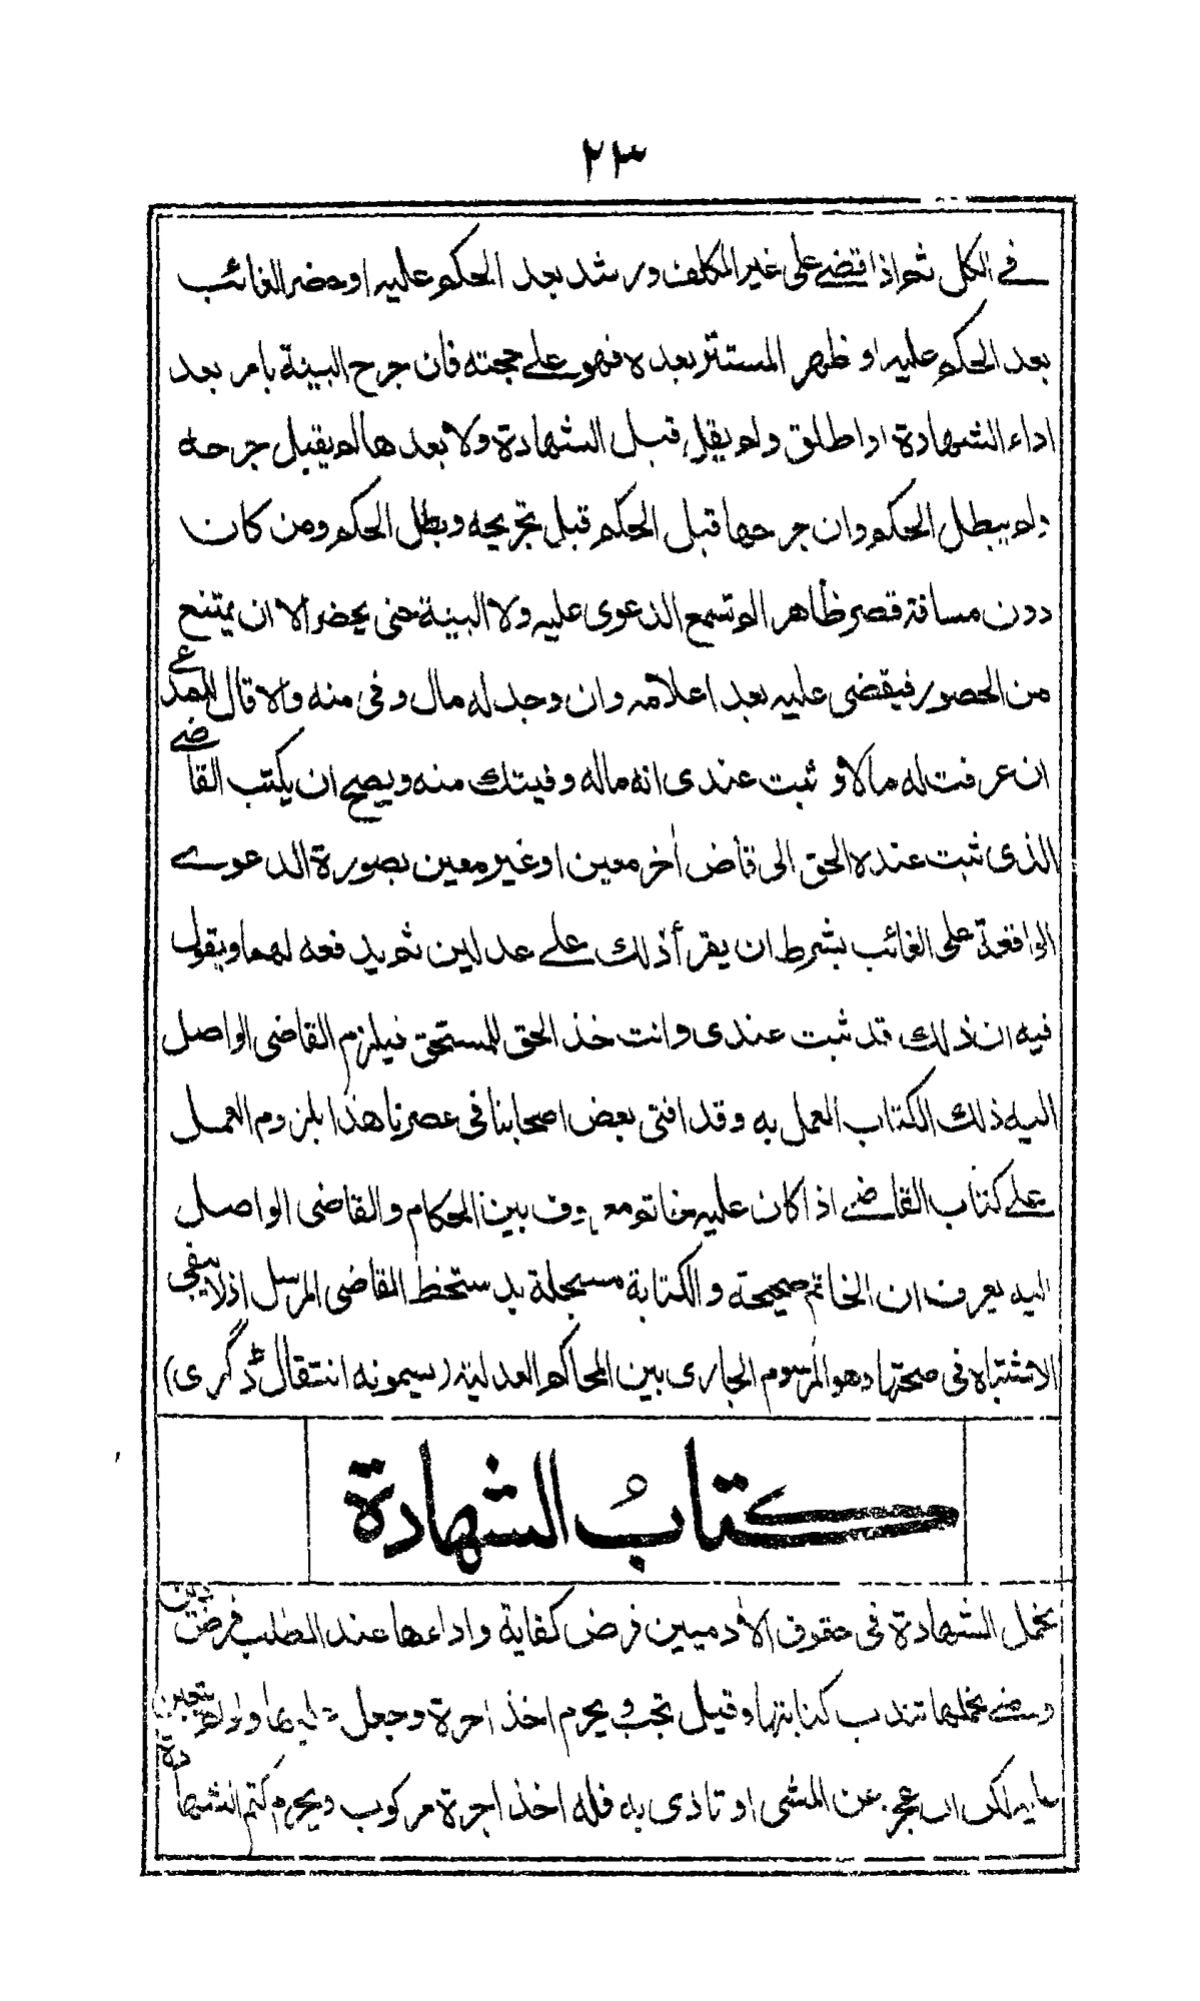 ٢٣
في الكل ثم اذا قضے على غير المكلف ورشد بعد الحكم عليه او حضر الغائب
بعد الحكم عليه او ظهر المستتر بعده فهو علے حجته فان جرح البينة بامر بعد
اداء الشهادة او اطلق ولم يقل قبل الشهادة ولا بعدها لم يقبل جرحه
ولم يبطل الحكم وان جرحها قبل الحكم قبل تجريحه وبطل الحكم ومن كان
دون مسافة قصر ظاهرا لم تسمع الدعوى عليه ولا البينة حتى يحضر الا ان يمتنع
من الحضور فيقضى عليه بعد اعلامه وان وجد له مال وفى منه والا قال للمدعے
ان عرفت له مالا و ثبت عندى انه ماله وفيتك منه ويصح ان يكتب القاضے
الذى ثبت عنده الحق الى قاض أخر معين او غير معين بصورة الدعوے
الواقعة على الغائب بشرط ان يقرأ ذلك علے عدلين ثم يدفعه لهما ويقول
فيه ان ذلك قد ثبت عندى وانت خذ الحق للمستحق فيلزم القاضى الواصل
اليه ذلك الكتاب العمل به وقد افتى بعض اصحابنا فى عصرنا هذا بلزوم العمل
علے كتاب القاضے اذا كان عليه خاتم معروف بين الحكام والقاضى الواصل
اليه يعرف ان الخاتم صحيحة والكتابة مسجلة بدستخط القاضى المرسل اذ لا يبقى
الاشتباه فى صحتها وهو المرسوم الجارى بين المحاكم العدلية (سيمونه انتقال ڈگرى)
كتابُ الشهادة
تحمل الشهادة فى حقوق الأدميين فرض كفاية واداءها عند الطلب فرض عين
ومتے تحملها تندب كتابتها وقيل تجب ويحرم اخذ اجرة وجعل عليها ولو لم يتعين
عليه لكن ان عجز عن المشى او تاذى به فله اخذ اجرة مركوب ويحرم كتم الشهادة